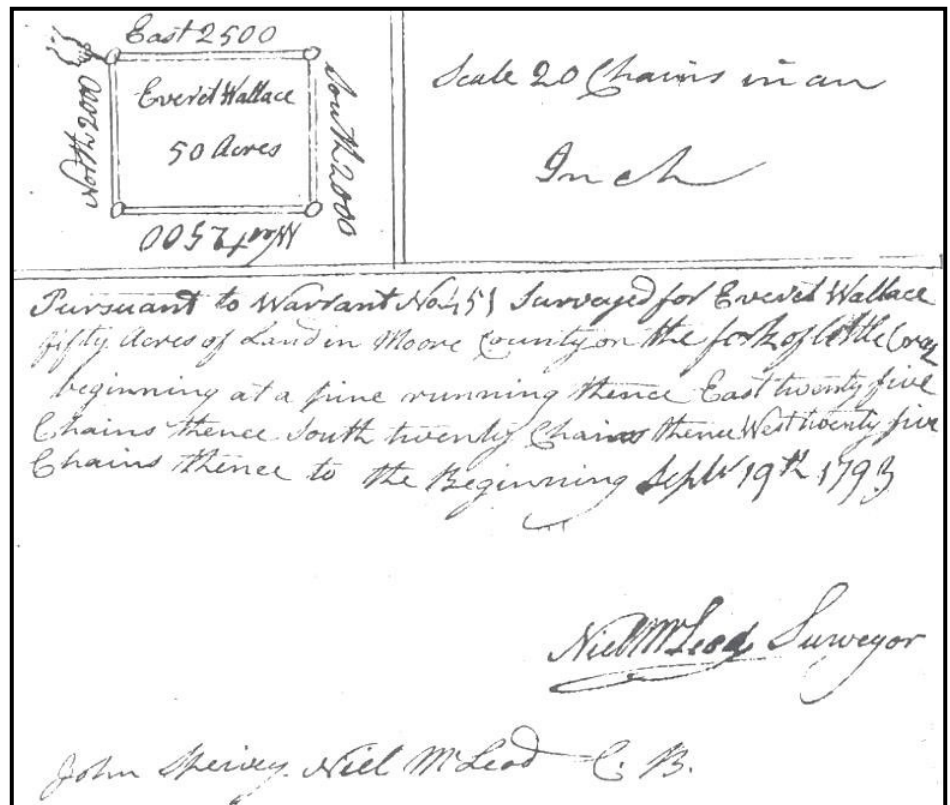 East 2500
North 2000
Everet Wallace
50 Acres
South 2000
West 2500
Scale 20 Chains in an
Inch
Pursuant to Warrant No 451 Surveyed for Everet Wallace
fifty Acres of Land in Moore County on the fork of
beginning at a pine running thence East twenty five
Chains thence South twenty Chains thence West twenty five
Chains thence to the Beginning Septr 19th 1793
Niel McLeod Surveyor
John Speivey Niel McLeod C. B.